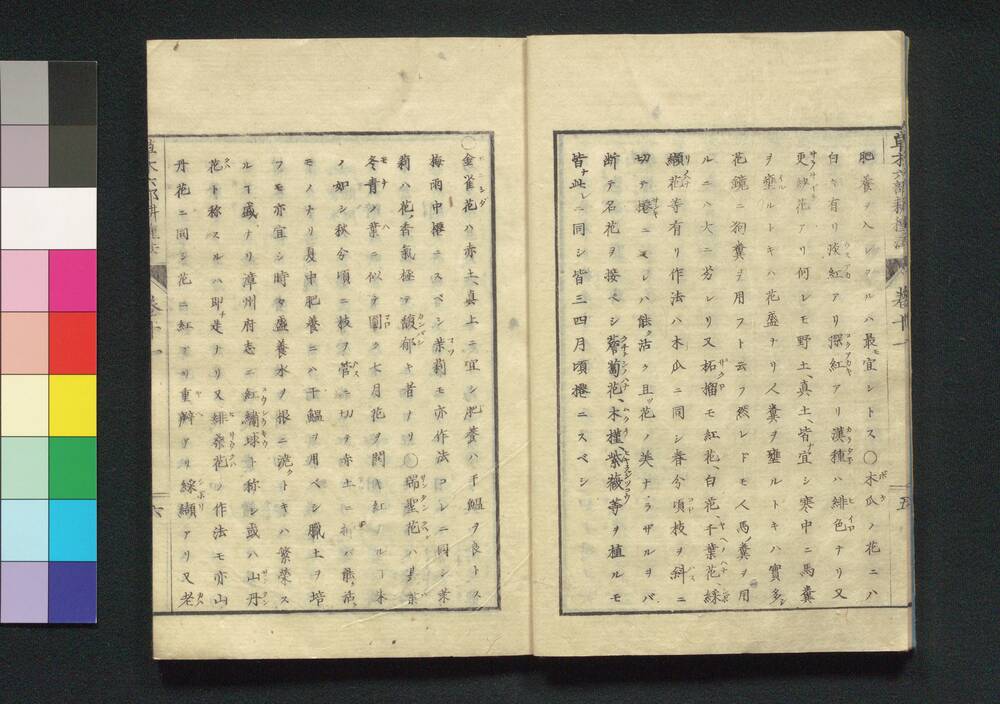 肥養ヲ入レタルハ最宜シトス〇木瓜ノ花ニハ
白キ有リ淡紅アリ深紅アリ漢種ハ緋色ナリ又
更紗花アリ何レモ野土、真土、皆宜シ寒中ニ馬糞
ヲ壅ルトキハ花盛ナリ人糞ヲ壅ルトキハ實多シ
花鏡ニ狗糞ヲ用フト云フ然レドモ人馬糞ヲ用
ルニハ大ニ劣レリ又柘榴モ紅花、白花、千葉花、綵
纈花等有リ作法ハ木瓜ニ同シ春分頃枝ヲ斜ニ
切テ捲ニモレハ能ク活ク且ツ花ノ美ナラザルヲバ
断テ名花ヲ接ベシ薝蔔花、木槿、紫薇等ヲ植ルモ
皆此レニ同シ皆三四月頃捲ニスベシ
草木六部耕種法 巻十一 五
〇金雀花ハ赤土、真土ニ宜シ肥養ハ干鰮ヲ良トス
梅雨中捲ニスベシ茉莉モ亦作法コレニ同シ茉
莉ハ花ノ香氣極テ馥郁キ者ナリ〇瑞聖花ハ其葉
冬青ノ葉ニ似テ圓ク七月花ヲ開キ紅ナルヿ朱
ノ如シ秋分頃ニ枝ヲ斜ニ切テ赤土ニ插バ能ク活
モノナリ夏中肥養ニハ干鰮ヲ用ベシ臘土ヲ培
フモ亦宜シ時々盛養水ヲ根ニ澆クトキハ繁榮ス
ルヿ盛ナリ漳州府志ニ紅繡球ト称シ或ハ山丹
花ト称スルハ即是ナリ又緋桑花ノ作法モ亦山
丹花ニ同シ花ニ紅アリ重瓣アリ綵纈アリ又老
草木六部耕種法 巻十一 六